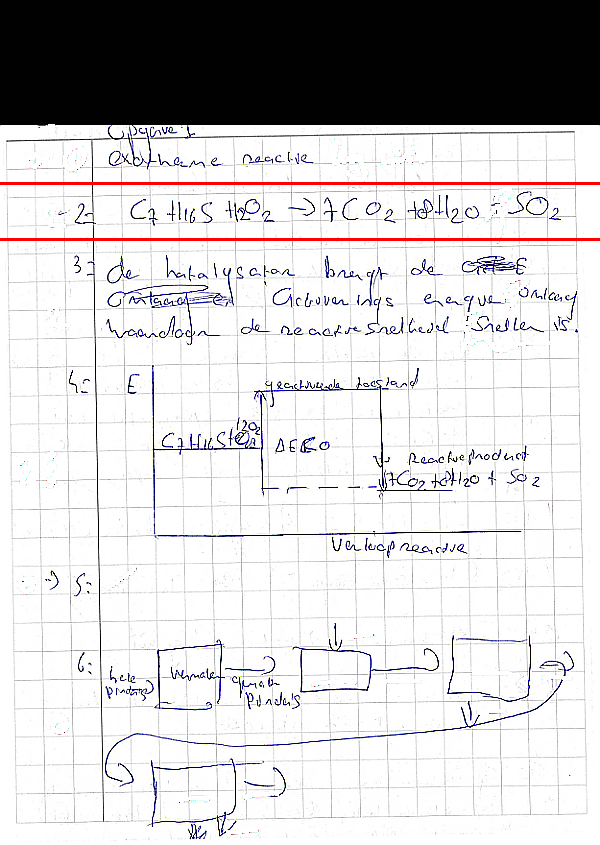 Opgave 1
exotherme reactie
2= C7H16S + 12O2 → 7CO2 + 8H2O + SO2
3= de katalysator brengt de
activerings energie omlaag
waardoor de reactiesnelheid sneller is.
4= E
geactiveerde toestand
12O2
C7H16S + ΔE<0
Reactieproduct
7CO2 + 8H2O + SO2
Verloop reactie
→ 5:
6: hele pinda's vermalen gemalen pinda's